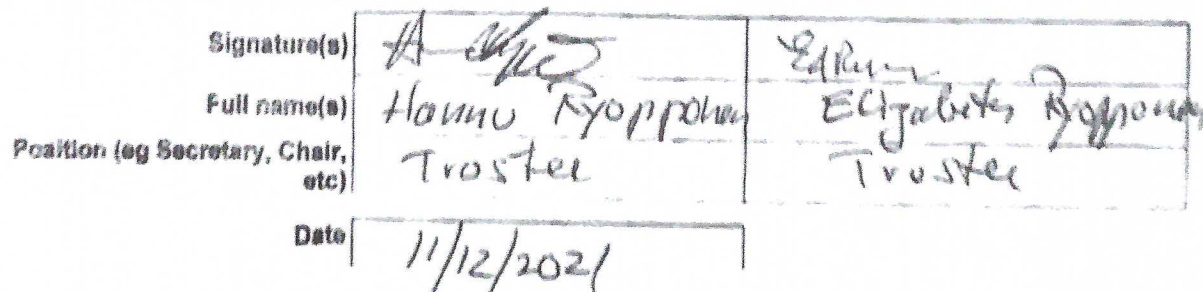 Signature(s)
Full name(s) Hannu Ryopponen Elizabeth Ryopponen
Position (eg Secretary, Chair, etc) Trustee Trustee
Date 11/12/2021